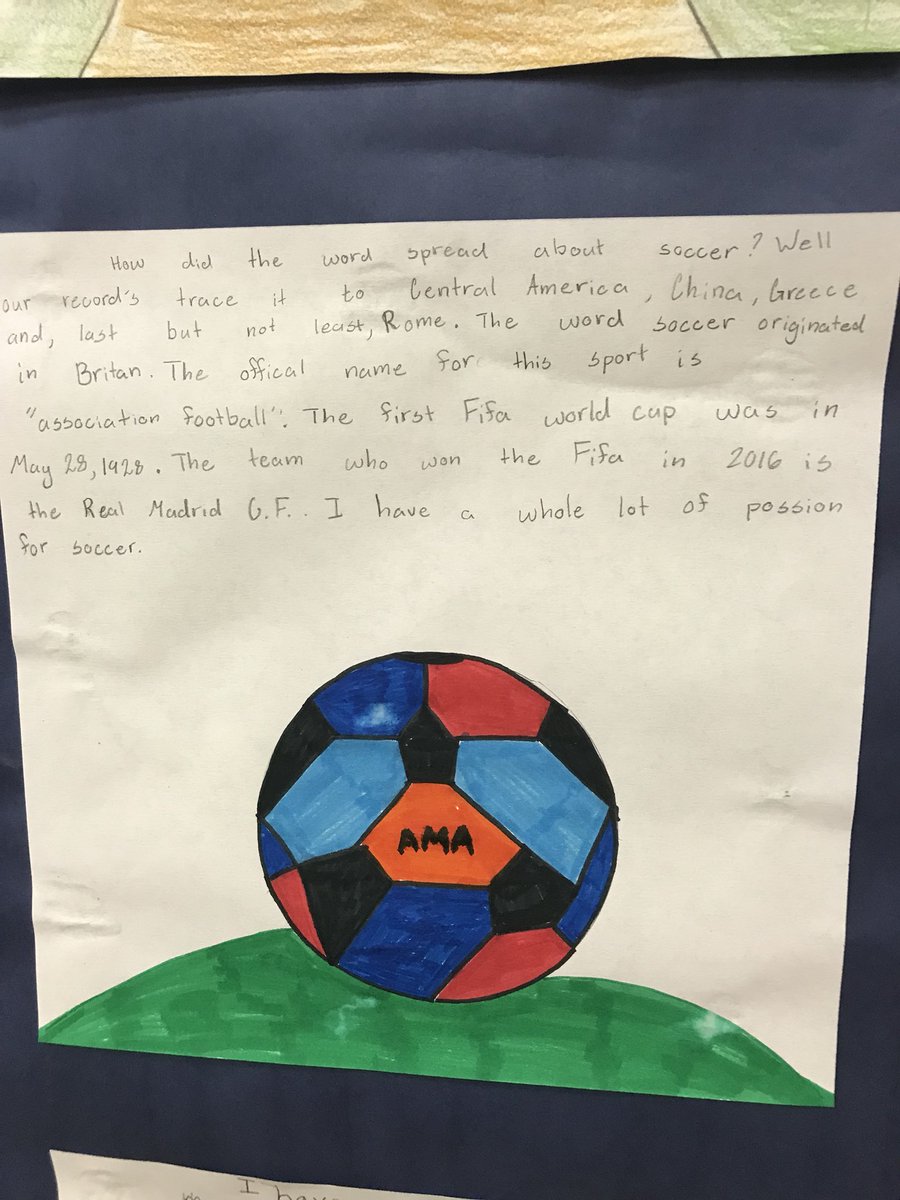 How did the word spread about soccer? Well
our record's trace it to Central America, China, Greece
and, last but not least, Rome. The word soccer originated
in Britan. The offical name for this sport is
"association football". The first Fifa world cup was in
May 28, 1928. The team who won the Fifa in 2016 is
the Real Madrid C.F.. I have a whole lot of possion
for soccer.
AMA
I have